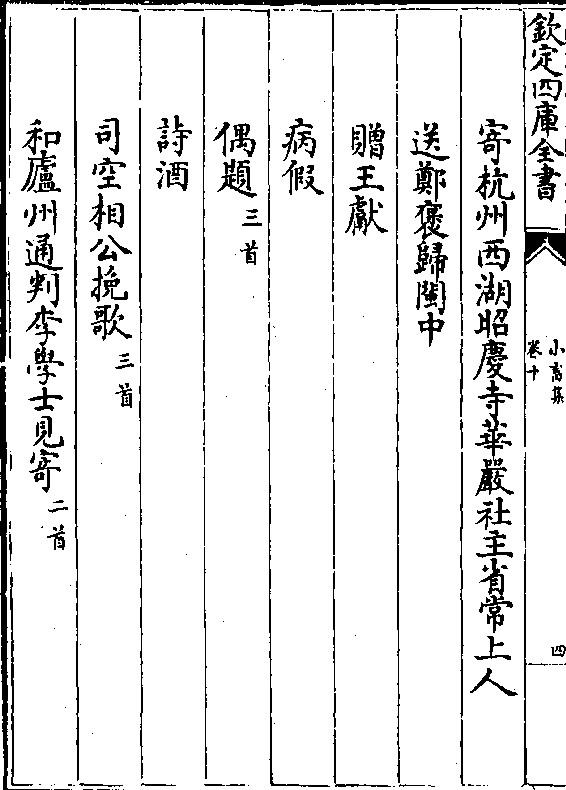 欽定四庫全書
小畜集
卷十
四
寄杭州西湖昭慶寺華嚴社主省常上人
送鄭褒歸閩中
贈王獻
病假
偶題三首
詩酒
司空相公挽歌三首
和廬州通判李學士見寄二首